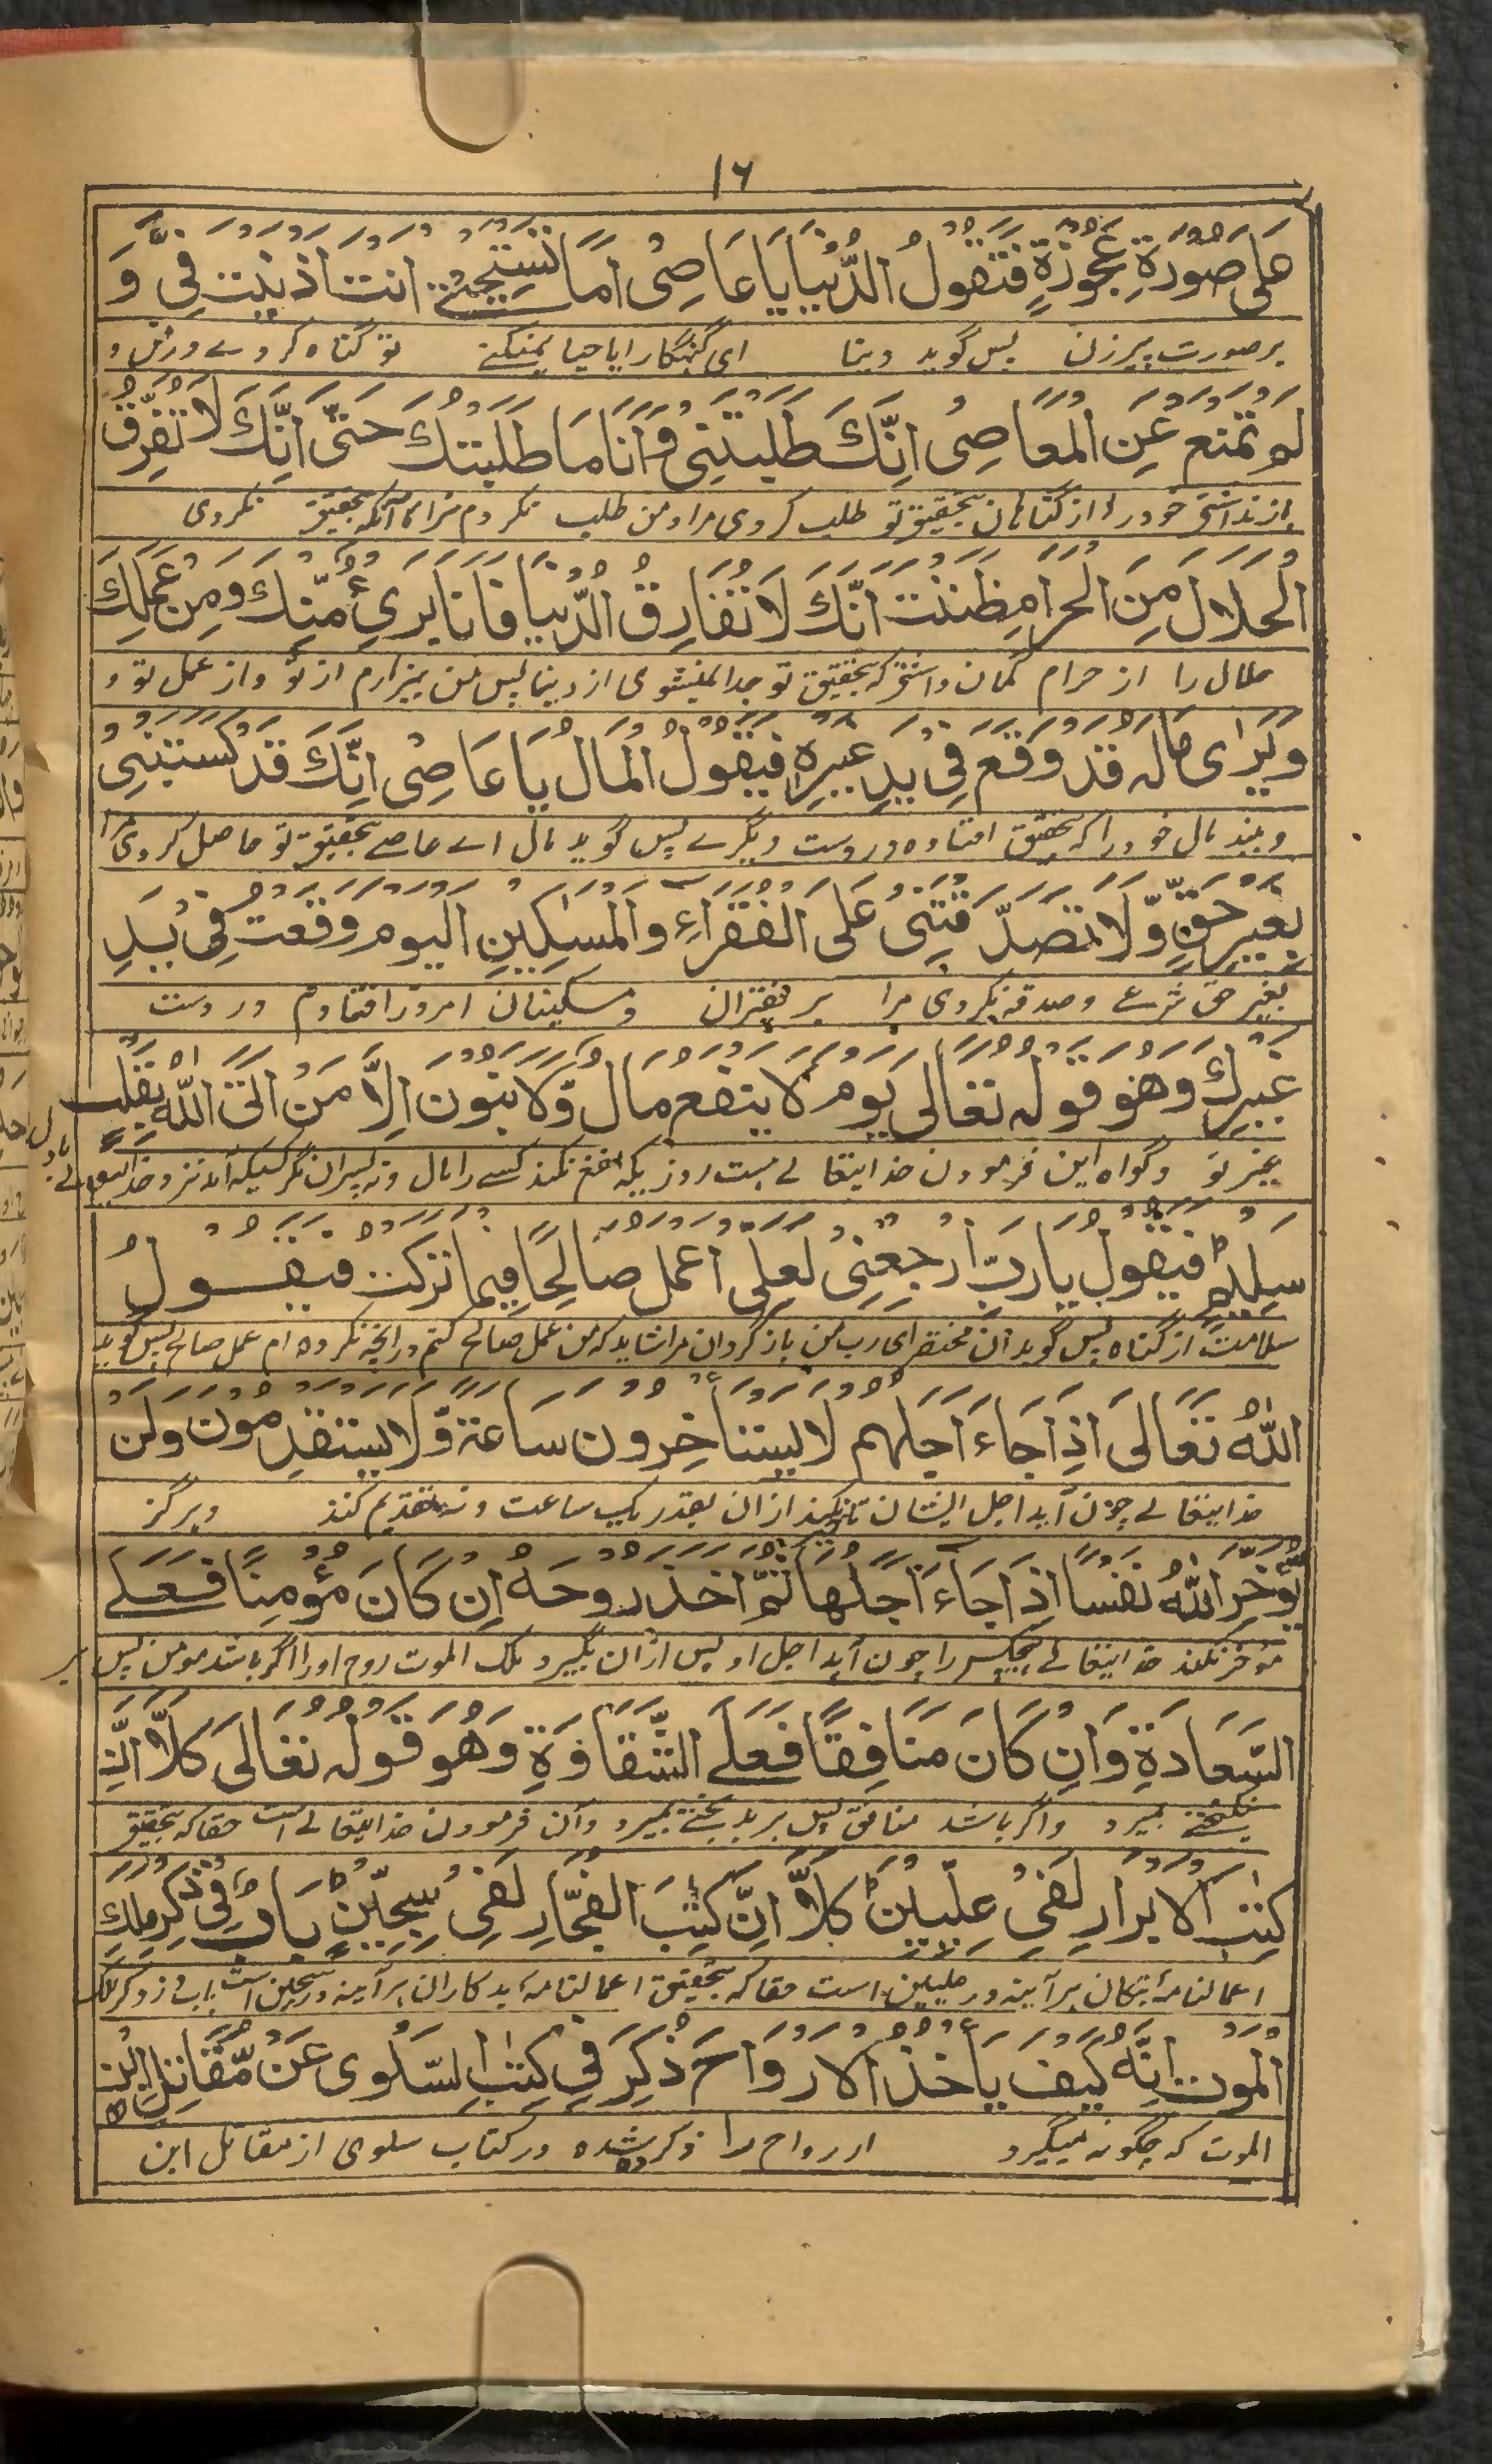 ١٦
عَلٰى صُوْرَةِ عَجُوْزَةٍ فَتَقُوْلُ الدُّنْيَا يَا عَاصِىْ اَمَا تَسْتَحْيِىْ اَنْتَ اَذْنَبْتَ فِىَّ وَ
بر صورت پیرزن پس گوید دینا ای گنهگار ایا حیا نمیکنے تو گناه کردے در من و
لَوْ تَمْنَعْ عَنِ الْمَعَاصِىْ اِنَّكَ طَلَبْتَنِىْ وَاَنَا مَا طَلَبْتُكَ حَتّٰى اِنَّكَ لَا تُفَرِّقُ
باز نداشتی خود را از گناهان بتحقیق تو طلب کردی مرا و من طلب نکردم ترا تا آنکه بتحقیق نکردی
الْحَلَالَ مِنَ الْحَرَامِ ظَنَنْتَ اَنَّكَ لَا تُفَارِقُ الدُّنْيَا فَاَنَا بَرِىْءٌ مِّنْكَ وَمِنْ عَمَلِكَ
حلال را از حرام گمان داشتی که بتحقیق تو جدا نمیشوی از دینا پس من بیزارم از تو و از عمل تو و
وَيَرٰى مَالَهٗ قَدْ وَقَعَ فِىْ يَدِ غَيْرِهٖ فَيَقُوْلُ الْمَالُ يَا عَاصِىْ اِنَّكَ قَدْ كَسَبْتَنِىْ
و بیند مال خود را که بتحقیق افتاده در دست دیگرے پس گوید مال اے عاصے بتحقیق تو حاصل کردی مرا
بِغَيْرِ حَقٍّ وَّلَا تَصَدَّقْتَنِىْ عَلَى الْفُقَرَآءِ وَالْمَسٰكِيْنِ الْيَوْمَ وَقَعْتُ فِىْ يَدِ
بغیر حق شرع و صدقه نکردی مرا بر فقیران و مسکینان امروز افتادم در دست
غَيْرِكَ وَهُوَ قَوْلُهٗ تَعَالٰى يَوْمَ لَا يَنْفَعُ مَالٌ وَّلَا بَنُوْنَ اِلَّا مَنْ اَتَى اللّٰهَ بِقَلْبٍ
بغیر تو و گواه این فرمودن خدایتعالے هست روزیکه نفع نکند کسے را مال و نه پسران مگر کسیکه آمد نزد خدایتعالے بادل
سَلِيْمٍ فَيَقُوْلُ يَا رَبِّ ارْجِعْنِىْ لَعَلِّىْ اَعْمَلُ صَالِحًا فِيْمَا تَرَكْتُ فَيَقُوْلُ
سلامت از گناه پس گوید آن محتضر ای رب من باز گردان مرا شاید که من عمل صالح کنم در آنچه نکرده ام عمل صالح پس گوید
اللّٰهُ تَعَالٰى اِذَا جَآءَ اَجَلُهُمْ لَا يَسْتَاْخِرُوْنَ سَاعَةً وَّلَا يَسْتَقْدِمُوْنَ وَلَنْ
خدایتعالے چون آید اجل ایشان تاخیر نکیند ازان بقدر یک ساعت و نه تقدیم کنند و هرگز
يُّؤَخِّرَ اللّٰهُ نَفْسًا اِذَا جَآءَ اَجَلُهَا ثُمَّ اَخَذَ رُوْحَهٗ اِنْ كَانَ مُؤْمِنًا فَعَلَى
موخر نکند خدایتعالے هیچکس را چون آید اجل او پس ازان بگیرد ملک الموت روح او را اگر باشد مومن پس بر
السَّعَادَةِ وَاِنْ كَانَ مُنَافِقًا فَعَلَى الشَّقَاوَةِ وَهُوَ قَوْلُهٗ تَعَالٰى كَلَّا اِنَّ
نیکبختے بمیرد و اگر باشد منافق پس بر بدبختے بمیرد و آن فرمودن خدایتعالے است حقا که بتحقیق
كِتٰبَ الْاَبْرَارِ لَفِىْ عِلِّيِّيْنَ كَلَّا اِنَّ كِتٰبَ الْفُجَّارِ لَفِىْ سِجِّيْنٍ بَابٌ فِىْ ذِكْرِ مَلَكِ
اعمالنامۀ نیکان هر آیینه در علیین است حقا که بتحقیق اعمالنامۀ بدکاران هر آیینه در سجین است باب در ذکر ملک
الْمَوْتِ اِنَّهٗ كَيْفَ يَاْخُذُ الْاَرْوَاحَ ذُكِرَ فِىْ كِتٰبِ السَّلْوٰى عَنْ مُّقَاتِلِ ابْنِ
الموت که چگونه میگیرد ارواح را ذکر شده در کتاب سلوی از مقاتل ابن